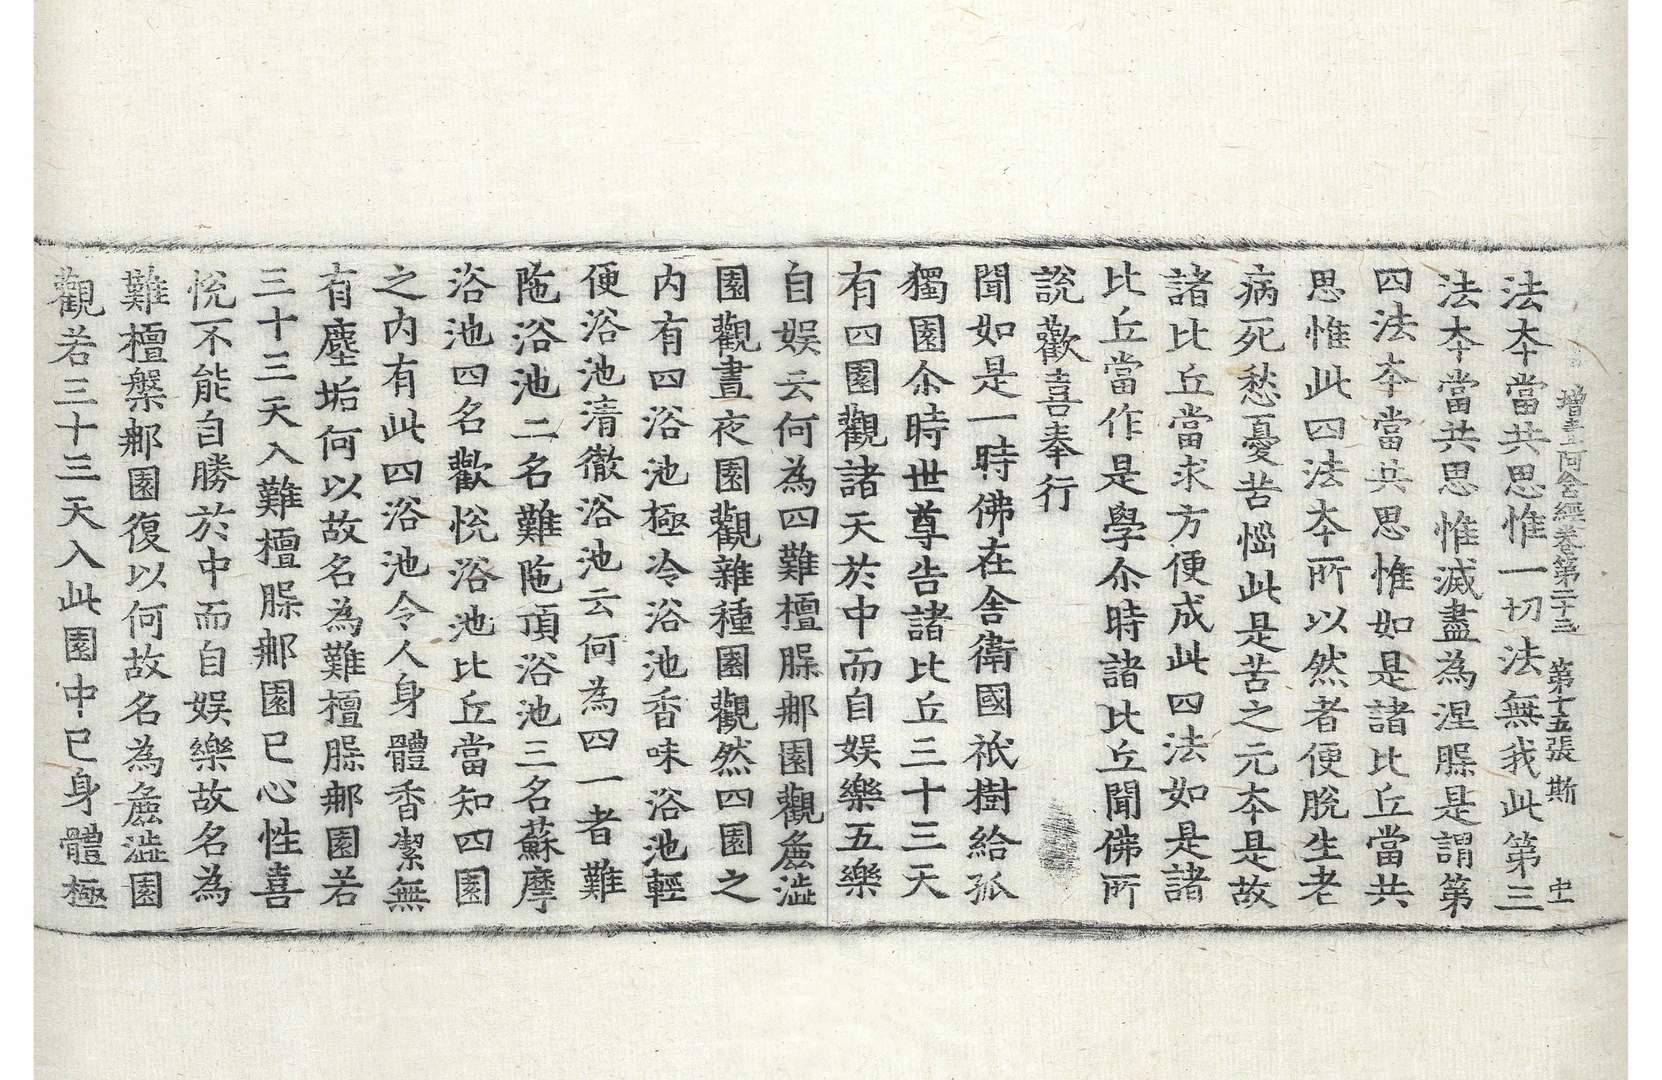 增壹阿含經卷第二十三　第十五張　斯
法夲當共思惟一切法無我此第三
法夲當共思惟滅盡為涅槃是謂第
四法夲當共思惟如是諸比丘當共
思惟此四法夲所以然者便脫生老
病死愁憂苦惱此是苦之元夲是故
諸比丘當求方便成此四法如是諸
比丘當作是學尒時諸比丘聞佛所
說歡喜奉行
聞如是一時佛在舍衛國祇樹給孤
獨園尒時世尊告諸比丘三十三天
有四園觀諸天於中而自娛樂五樂
自娛云何為四難檀槃那園觀麁澁
園觀晝夜園觀雜種園觀然四園之
內有四浴池極冷浴池香味浴池輕
便浴池清徹浴池云何為四一者難
陁浴池二名難陁頂浴池三名蘇摩
浴池四名歡悅浴池比丘當知四園
之內有此四浴池令人身體香潔無
有塵垢何以故名為難檀槃那園若
三十三天入難檀槃那園已心性喜
悅不能自勝於中而自娛樂故名為
難檀槃那園復以何故名為麁澁園
觀若三十三天入此園中已身體極